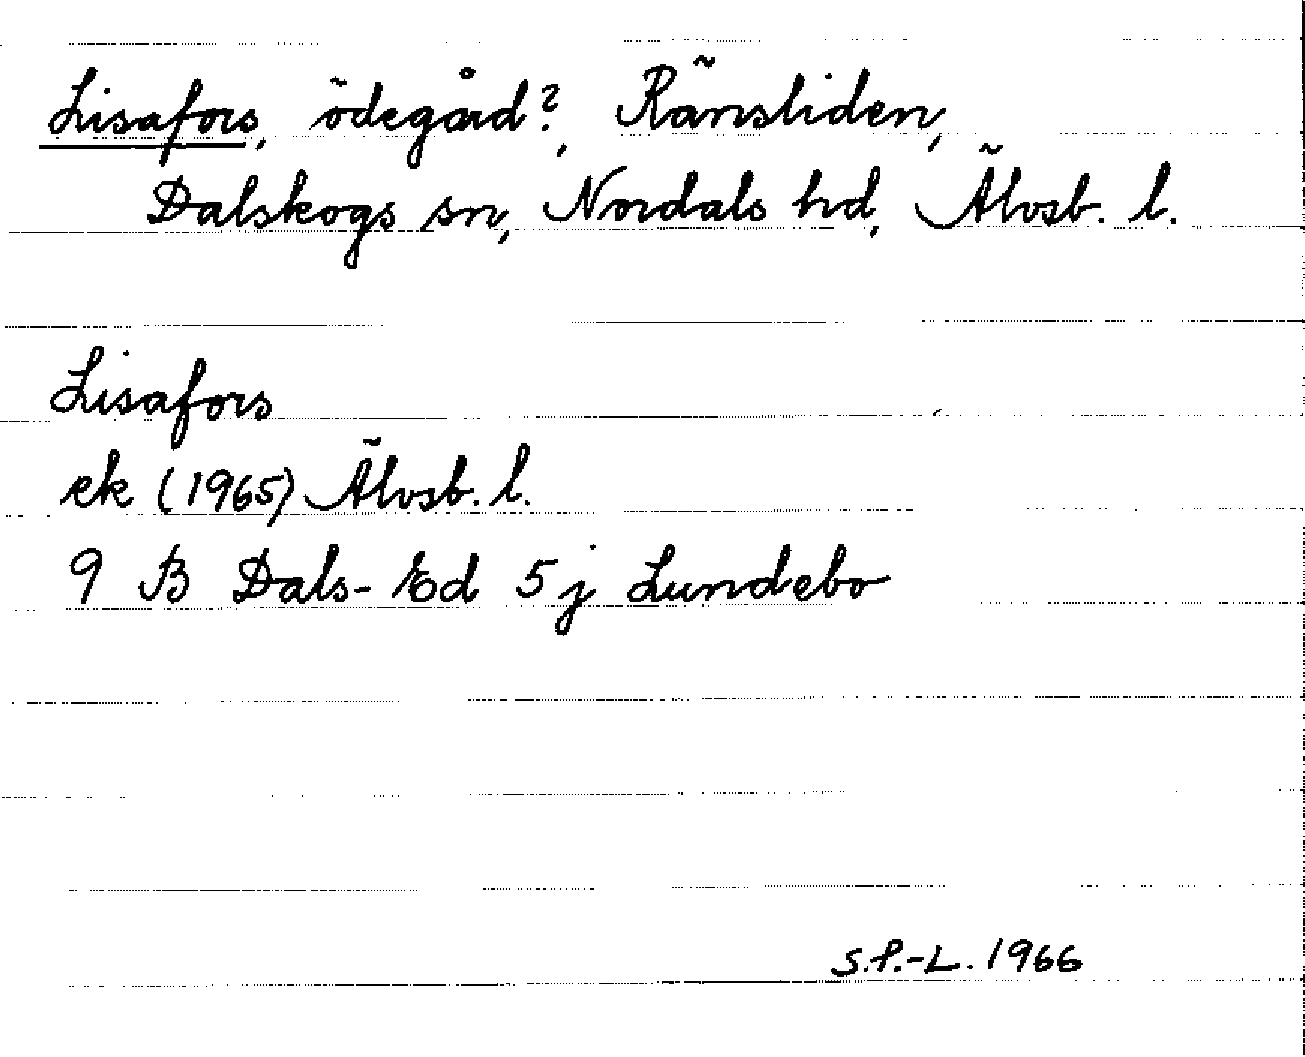 Lisafors, ödegård?, Ränsliden,
Dalskogs sn, Nordals hd, Älvsb. l.
Lisafors
ek (1965) Älvsb. l.
9 B Dals-Ed 5 j Lundebo
S.P.-L. 1966